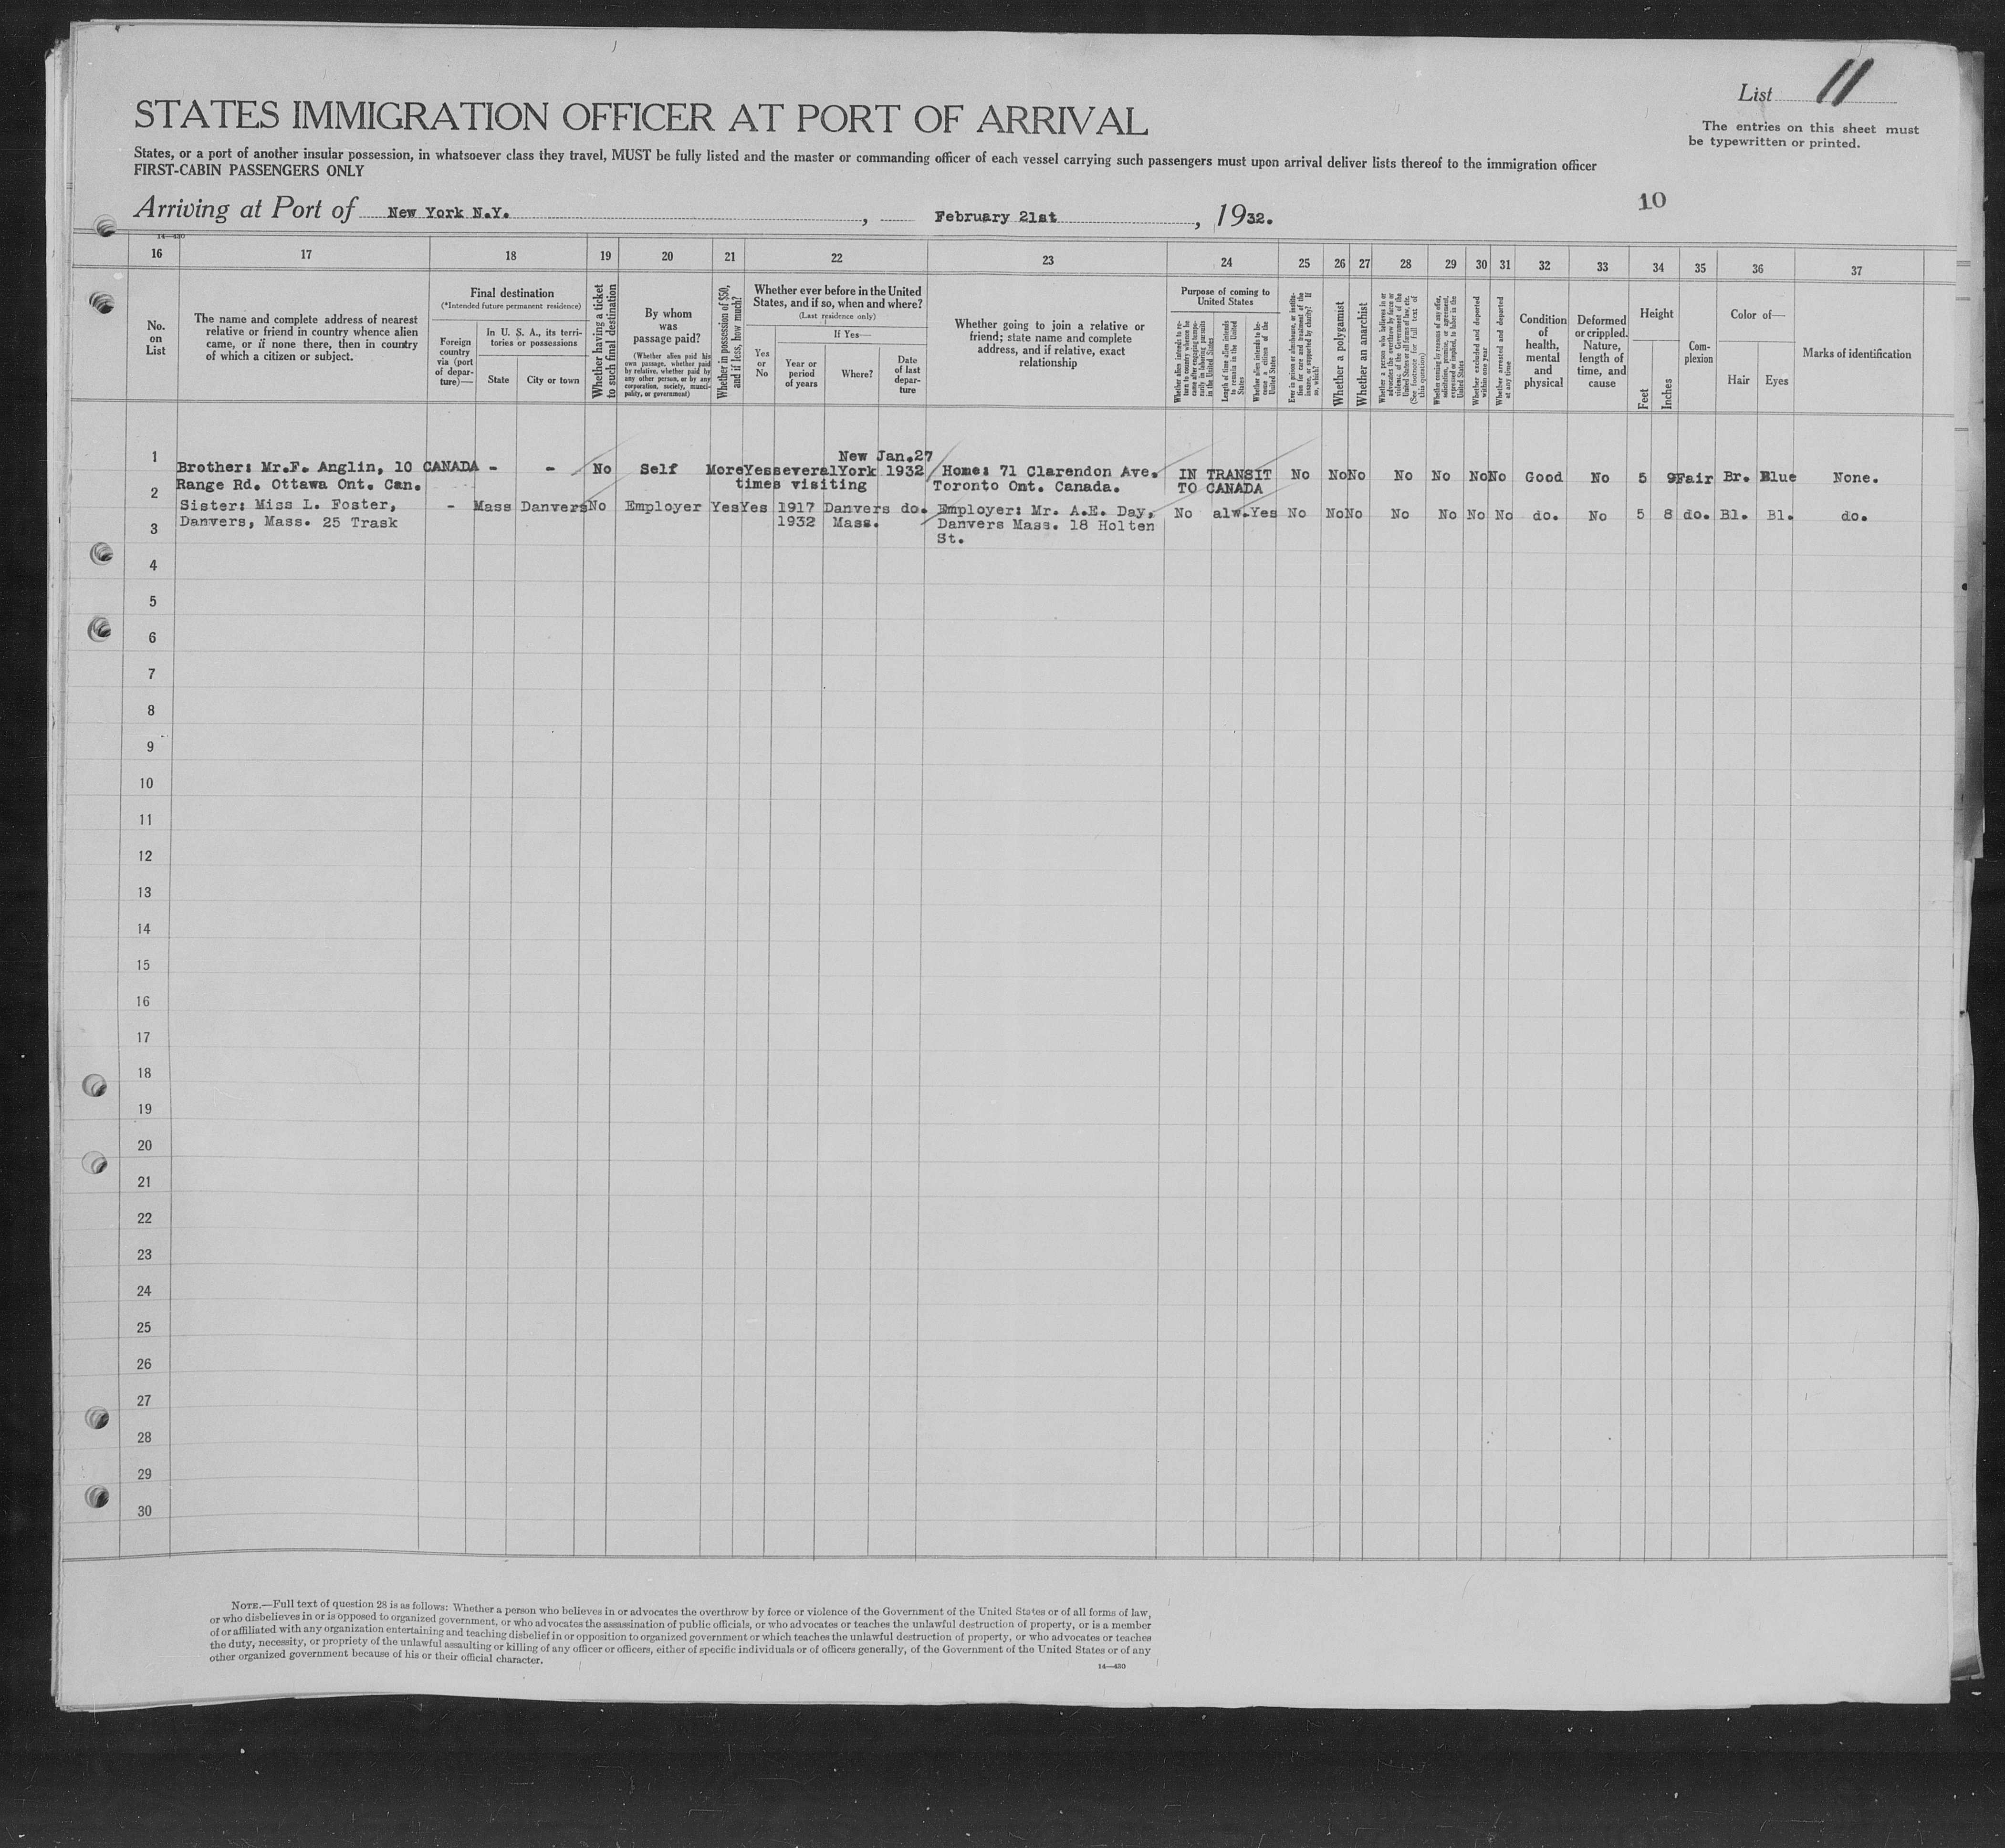 List 11
The entries on this sheet must
be typewritten or printed.
STATES IMMIGRATION OFFICER AT PORT OF ARRIVAL
States, or a port of another insular possession, in whatsoever class they travel, MUST be fully listed and the master or commanding officer of each vessel carrying such passengers must upon arrival deliver lists thereof to the immigration officer
FIRST-CABIN PASSENGERS ONLY
10
Arriving at Port of New York N.Y., February 21st, 1932.
14—430
16 17 18 19 20 21 22 23 24 25 26 27 28 29 30 31 32 33 34 35 36 37
No. on List
The name and complete address of nearest
relative or friend in country whence alien
came, or if none there, then in country
of which a citizen or subject.
Final destination
(*Intended future permanent residence)
Foreign country via (port of departure)—
In U. S. A., its territories or possessions
State
City or town
Whether having a ticket
to such final destination
By whom was passage paid?
(Whether alien paid his own passage, whether paid by relative, whether paid by any other person, or by any corporation, society, municipality, or government)
Whether in possession of $50,
and if less, how much?
Whether ever before in the United
States, and if so, when and where?
(Last residence only)
Yes or No
If Yes—
Year or period of years
Where?
Date of last departure
Whether going to join a relative or
friend; state name and complete
address, and if relative, exact
relationship
Purpose of coming to
United States
Whether alien intends to return to country whence he came after engaging temporarily in laboring pursuits in the United States
Length of time alien intends to remain in the United States
Whether alien intends to become a citizen of the United States
Ever in prison or almshouse, or institution for care and treatment of the insane, or supported by charity? If so, which?
Whether a polygamist
Whether an anarchist
Whether a person who believes in or advocates the overthrow by force or violence of the Government of the United States or all forms of law, etc. (See footnote for full text of this question)
Whether coming by reason of any offer, solicitation, promise, or agreement, expressed or implied, to labor in the United States
Whether excluded and deported within one year
Whether arrested and deported at any time
Condition of health, mental and physical
Deformed or crippled. Nature, length of time, and cause
Height
Feet
Inches
Complexion
Color of—
Hair
Eyes
Marks of identification
1
Brother: Mr.F. Anglin, 10 CANADA - - No Self More Yes several New York Jan.27 1932 Home: 71 Clarendon Ave. IN TRANSIT No No No No No No No Good No 5 9 Fair Br. Blue None.
Range Rd. Ottawa Ont. Can. times visiting Toronto Ont. Canada. TO CANADA
2
Sister: Miss L. Foster, - Mass Danvers No Employer Yes Yes 1917 Danvers do. Employer: Mr. A.E. Day, No alw. Yes No No No No No No No do. No 5 8 do. Bl. Bl. do.
Danvers, Mass. 25 Trask 1932 Mass. Danvers Mass. 18 Holten
St.
3
4
5
6
7
8
9
10
11
12
13
14
15
16
17
18
19
20
21
22
23
24
25
26
27
28
29
30
NOTE.—Full text of question 28 is as follows: Whether a person who believes in or advocates the overthrow by force or violence of the Government of the United States or of all forms of law,
or who disbelieves in or is opposed to organized government, or who advocates the assassination of public officials, or who advocates or teaches the unlawful destruction of property, or is a member
of or affiliated with any organization entertaining and teaching disbelief in or opposition to organized government or which teaches the unlawful destruction of property, or who advocates or teaches
the duty, necessity, or propriety of the unlawful assaulting or killing of any officer or officers, either of specific individuals or of officers generally, of the Government of the United States or of any
other organized government because of his or their official character.
14—430